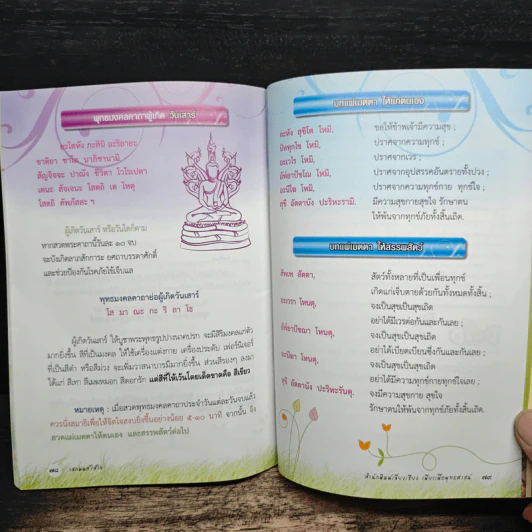 พุทธมงคลคาถาผู้เกิด วันเสาร์
ยะโตหัง ภะคินิ อะริยายะ
ชาติยา ชาโต นาภิชานามิ
สัญจิจจะ ปาณัง ชีวิตา โวโรเปตา
เตนะ สัจเจนะ โสตถิ เต โหตุ
โสตถิ คัพภัสสะ ฯ
ผู้เกิดวันเสาร์ หรือวันใดก็ตาม
หากสวดพระคาถานี้วันละ ๑๐ จบ
จะบังเกิดลาภสักการะ ยศถาบรรดาศักดิ์
และช่วยป้องกันโรคภัยไข้เจ็บแล
พุทธมงคลคาถาย่อผู้เกิดวันเสาร์
โส มา ณะ กะ ริ ถา โธ
ผู้เกิดวันเสาร์ ให้บูชาพระพุทธรูปปางนาคปรก จะมีสิริมงคลแก่ตัว
มากยิ่งขึ้น สีที่เป็นมงคล ให้ใช้เครื่องแต่งกาย เครื่องประดับ เฟอร์นิเจอร์
ที่เป็นสีดำ หรือสีม่วง จะเพิ่มวาสนาบารมีมากยิ่งขึ้น ส่วนสีรองๆ ลงมา
ได้แก่ สีเทา สีเมฆหมอก สีดอกรัก แต่สีที่ให้เว้นโดยเด็ดขาดคือ สีเขียว
หมายเหตุ : เมื่อสวดพุทธมงคลคาถาประจำวันแต่ละวันจบแล้ว
ควรนั่งสมาธิเพื่อให้จิตใจสงบยิ่งขึ้นอย่างน้อย ๕-๑๐ นาที จากนั้น จึง
สวดแผ่เมตตาให้ตนเอง และสรรพสัตว์ต่อไป
๗๘
บทแผ่เมตตา ให้แก่ตนเอง
อะหัง สุขิโต โหมิ, ขอให้ข้าพเจ้ามีความสุข ;
นิททุกโข โหมิ, ปราศจากความทุกข์ ;
อะเวโร โหมิ, ปราศจากเวร ;
อัพ๎ยาปัชโฌ โหมิ, ปราศจากอุปสรรคอันตรายทั้งปวง ;
อะนีโฆ โหมิ, ปราศจากความทุกข์กาย ทุกข์ใจ ;
สุขี อัตตานัง ปะริหะรามิ. มีความสุขกายสุขใจ รักษาตน
ให้พ้นจากทุกข์ภัยทั้งสิ้นเถิด.
บทแผ่เมตตา ให้สรรพสัตว์
สัพเพ สัตตา, สัตว์ทั้งหลายที่เป็นเพื่อนทุกข์
เกิดแก่เจ็บตายด้วยกันทั้งหมดทั้งสิ้น ;
อะเวรา โหนตุ, จงเป็นสุขเป็นสุขเถิด
อย่าได้มีเวรต่อกันและกันเลย ;
อัพ๎ยาปัชฌา โหนตุ, จงเป็นสุขเป็นสุขเถิด
อย่าได้เบียดเบียนซึ่งกันและกันเลย ;
อะนีฆา โหนตุ, จงเป็นสุขเป็นสุขเถิด
อย่าได้มีความทุกข์กายทุกข์ใจเลย ;
สุขี อัตตานัง ปะริหะรันตุ. จงมีความสุขกาย สุขใจ
รักษาตนให้พ้นจากทุกข์ภัยทั้งสิ้นเถิด.
สำนักพิมพ์เลี่ยงเชียง เพียรเพื่อพุทธศาสน์ ๗๙